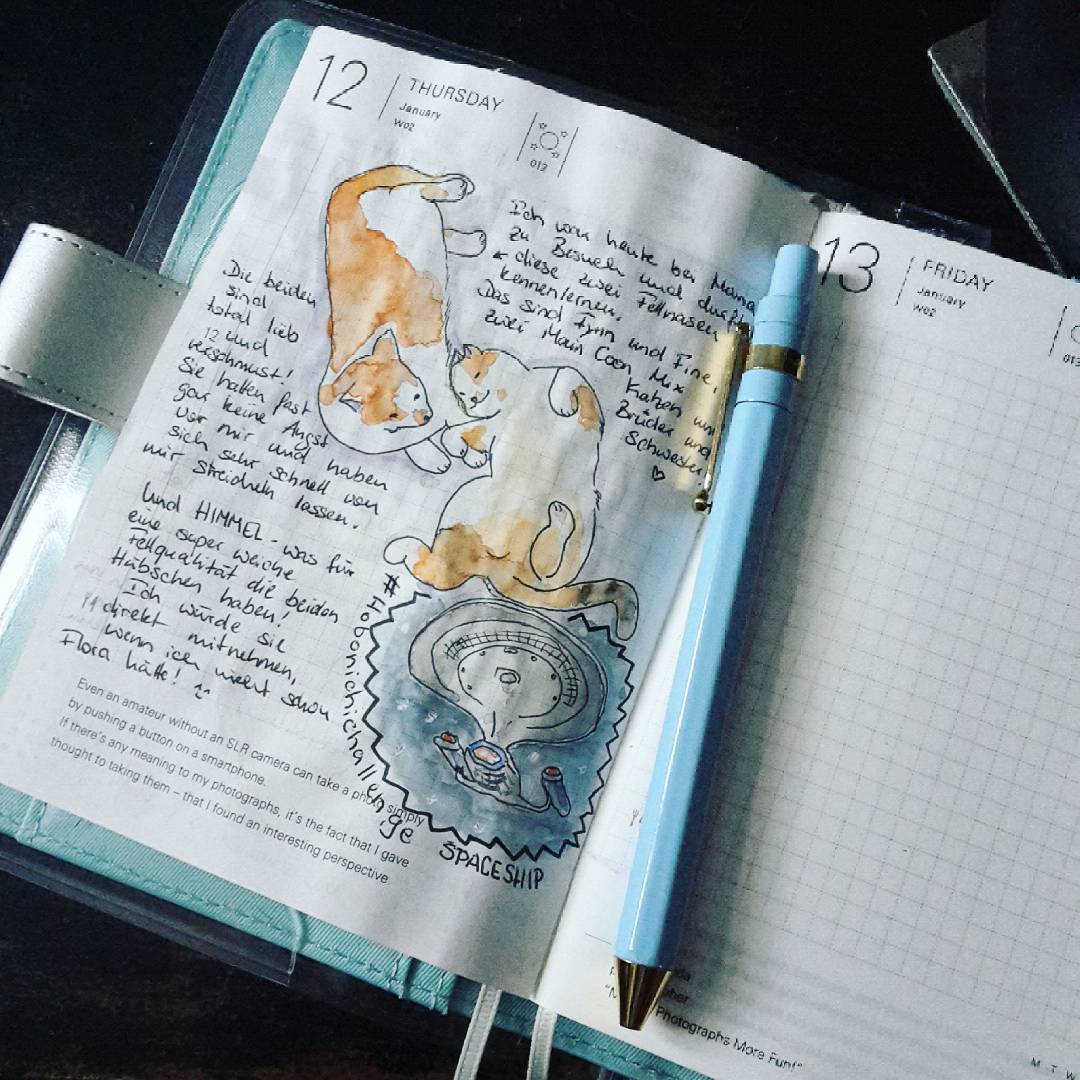 12
THURSDAY
January
W02
012
Ich war heute bei Mana
zu Besuch und durft
← diese zwei Fellnasen
kennenlernen.
Das sind Finn und Fine,
zwei Main Coon Mix
Katzen und
Brüder und
Schwester
♡
Die beiden
sind
total lieb
und
verschmust!
Sie hatten fast
gar keine Angst
vor mir und haben
sich sehr schnell von
mir streicheln lassen.
Und HIMMEL - was für
eine super weiche
Fellqualität die beiden
Hübschen haben!
Ich würde sie
direkt mitnehmen,
wenn ich nicht schon
Flora hätte!
#hobonichichallenge
SPACESHIP
Even an amateur without an SLR camera can take a photo simply
by pushing a button on a smartphone.
If there's any meaning to my photographs, it's the fact that I gave
thought to taking them – that I found an interesting perspective.
13
FRIDAY
January
W02
013
Photographs More Fun!"
M T W